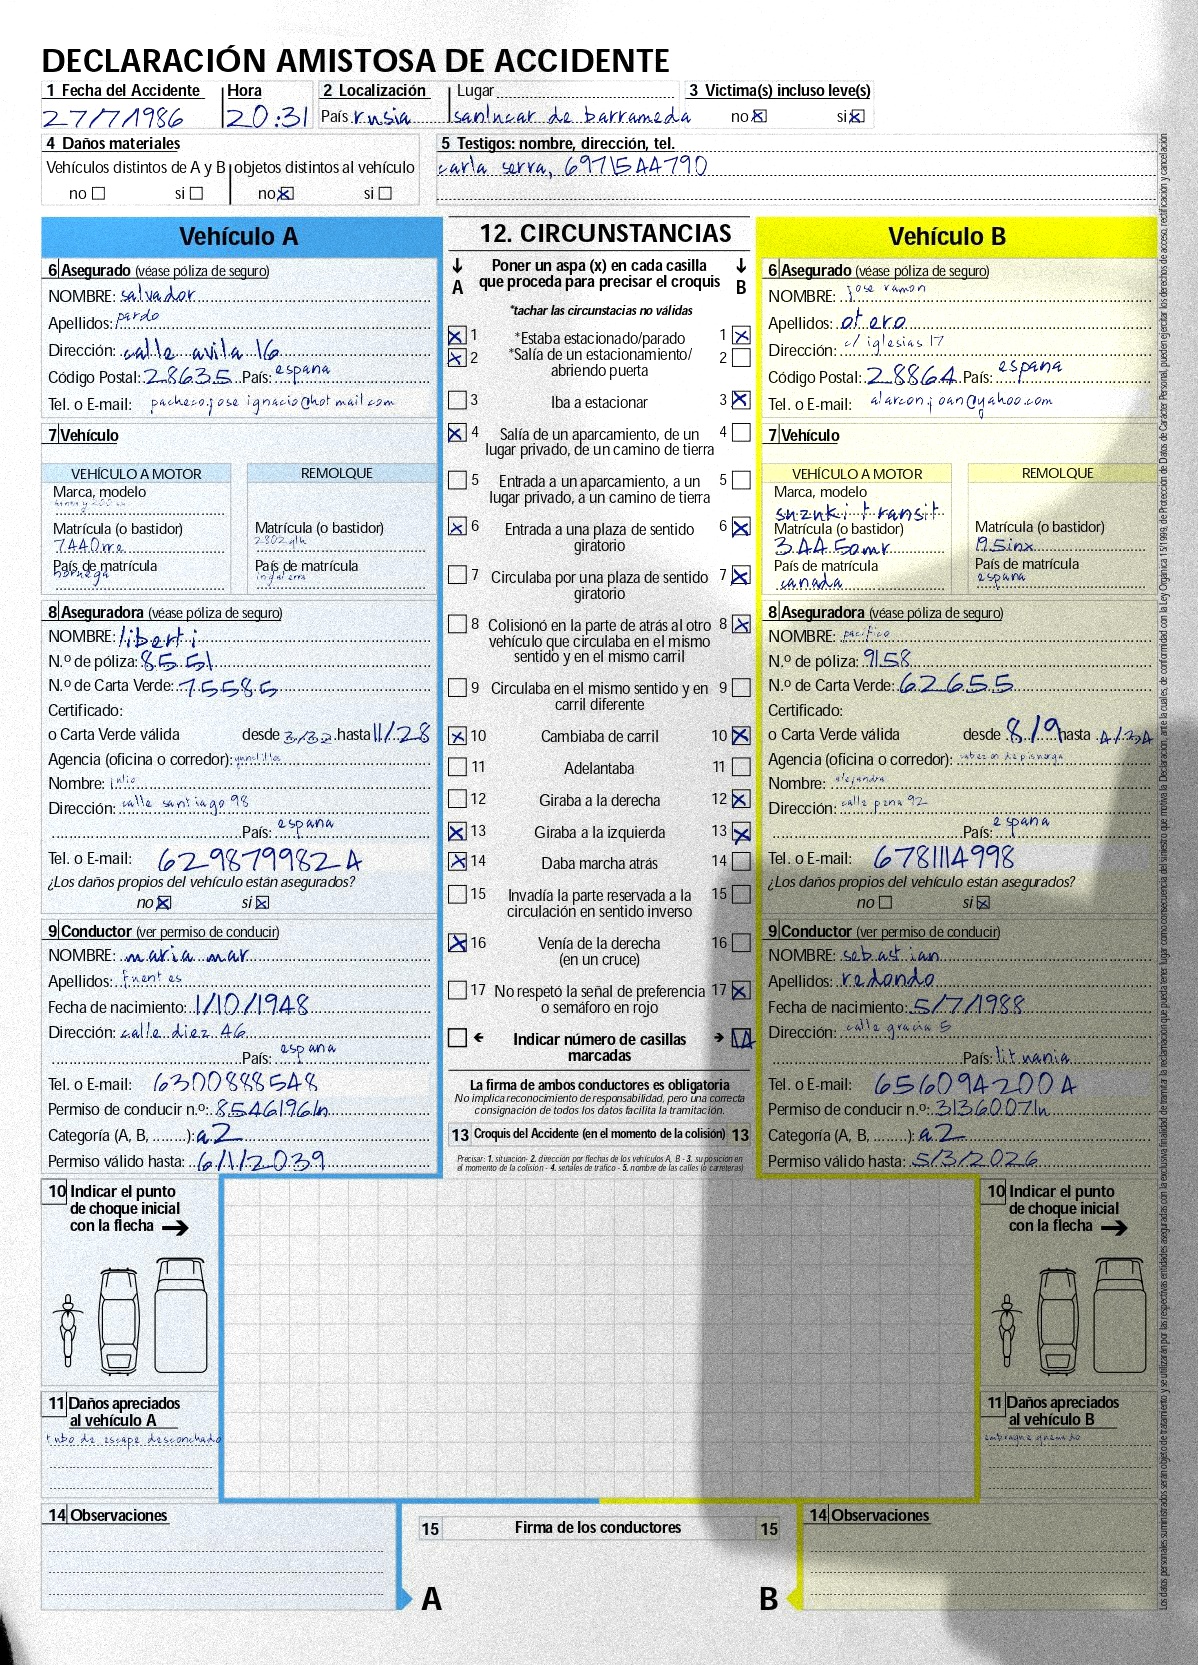 DECLARACIÓN AMISTOSA DE ACCIDENTE
1 Fecha del Accidente Hora 2 Localización Lugar 3 Victima(s) incluso leve(s)
27/7/1986 20:31 País rusia sanlucar de barrameda no si
4 Daños materiales 5 Testigos: nombre, dirección, tel.
Vehículos distintos de A y B objetos distintos al vehículo carla serra, 6971544790
no si no si
Vehículo A
6 Asegurado (véase póliza de seguro)
NOMBRE: salvador
Apellidos: pardo
Dirección: calle avila 16
Código Postal: 28635 País: espana
Tel. o E-mail: pacheco.jose ignacio@hotmail.com
7 Vehículo
VEHÍCULO A MOTOR REMOLQUE
Marca, modelo
Matrícula (o bastidor) Matrícula (o bastidor)
7440rra 2802glh
País de matrícula País de matrícula
noruega inglaterra
8 Aseguradora (véase póliza de seguro)
NOMBRE: liberti
N.º de póliza: 8551
N.º de Carta Verde: 75585
Certificado:
o Carta Verde válida desde 3/32 hasta 11/28
Agencia (oficina o corredor):
Nombre: julio
Dirección: calle santiago 98
País: espana
Tel. o E-mail: 6298799824
¿Los daños propios del vehículo están asegurados?
no si
9 Conductor (ver permiso de conducir)
NOMBRE: maria mar
Apellidos: fuentes
Fecha de nacimiento: 1/10/1948
Dirección: calle diez 46
País: espana
Tel. o E-mail: 6300888548
Permiso de conducir n.º: 8546196ln
Categoría (A, B, ........): a2
Permiso válido hasta: 6/1/2039
10 Indicar el punto
de choque inicial
con la flecha
11 Daños apreciados
al vehículo A
tubo de escape desconchado
14 Observaciones
12. CIRCUNSTANCIAS
Poner un aspa (x) en cada casilla
A que proceda para precisar el croquis B
*tachar las circunstacias no válidas
1 *Estaba estacionado/parado 1
2 *Salía de un estacionamiento/ 2
abriendo puerta
3 Iba a estacionar 3
4 Salía de un aparcamiento, de un 4
lugar privado, de un camino de tierra
5 Entrada a un aparcamiento, a un 5
lugar privado, a un camino de tierra
6 Entrada a una plaza de sentido 6
giratorio
7 Circulaba por una plaza de sentido 7
giratorio
8 Colisionó en la parte de atrás al otro 8
vehículo que circulaba en el mismo
sentido y en el mismo carril
9 Circulaba en el mismo sentido y en 9
carril diferente
10 Cambiaba de carril 10
11 Adelantaba 11
12 Giraba a la derecha 12
13 Giraba a la izquierda 13
14 Daba marcha atrás 14
15 Invadía la parte reservada a la 15
circulación en sentido inverso
16 Venía de la derecha 16
(en un cruce)
17 No respetó la señal de preferencia 17
o semáforo en rojo
Indicar número de casillas 14
marcadas
La firma de ambos conductores es obligatoria
No implica reconocimiento de responsabilidad, pero una correcta
consignación de todos los datos facilita la tramitación.
13 Croquis del Accidente (en el momento de la colisión) 13
Precisar: 1. situación- 2. dirección por flechas de los vehículos A, B - 3. su posición en
el momento de la colisión - 4. señales de tráfico - 5. nombre de las calles (o carreteras)
15 Firma de los conductores 15
A B
Vehículo B
6 Asegurado (véase póliza de seguro)
NOMBRE: jose ramon
Apellidos: otero
Dirección: c/ iglesias 17
Código Postal: 28864 País: espana
Tel. o E-mail: alarconjoan@yahoo.com
7 Vehículo
VEHÍCULO A MOTOR REMOLQUE
Marca, modelo
suzuki transit
Matrícula (o bastidor) Matrícula (o bastidor)
3445amr 195inx
País de matrícula País de matrícula
canada espana
8 Aseguradora (véase póliza de seguro)
NOMBRE: pacifico
N.º de póliza: 9158
N.º de Carta Verde: 62655
Certificado:
o Carta Verde válida desde 8/9 hasta 4/34
Agencia (oficina o corredor): cabezon de pisuerga
Nombre: alejandra
Dirección: calle pena 92
País: espana
Tel. o E-mail: 6781114998
¿Los daños propios del vehículo están asegurados?
no si
9 Conductor (ver permiso de conducir)
NOMBRE: sebastian
Apellidos: redondo
Fecha de nacimiento: 5/7/1988
Dirección: calle gracia 5
País: lituania
Tel. o E-mail: 6560942004
Permiso de conducir n.º: 3136007ln
Categoría (A, B, ........): a2
Permiso válido hasta: 5/3/2026
10 Indicar el punto
de choque inicial
con la flecha
11 Daños apreciados
al vehículo B
embrague quemado
14 Observaciones